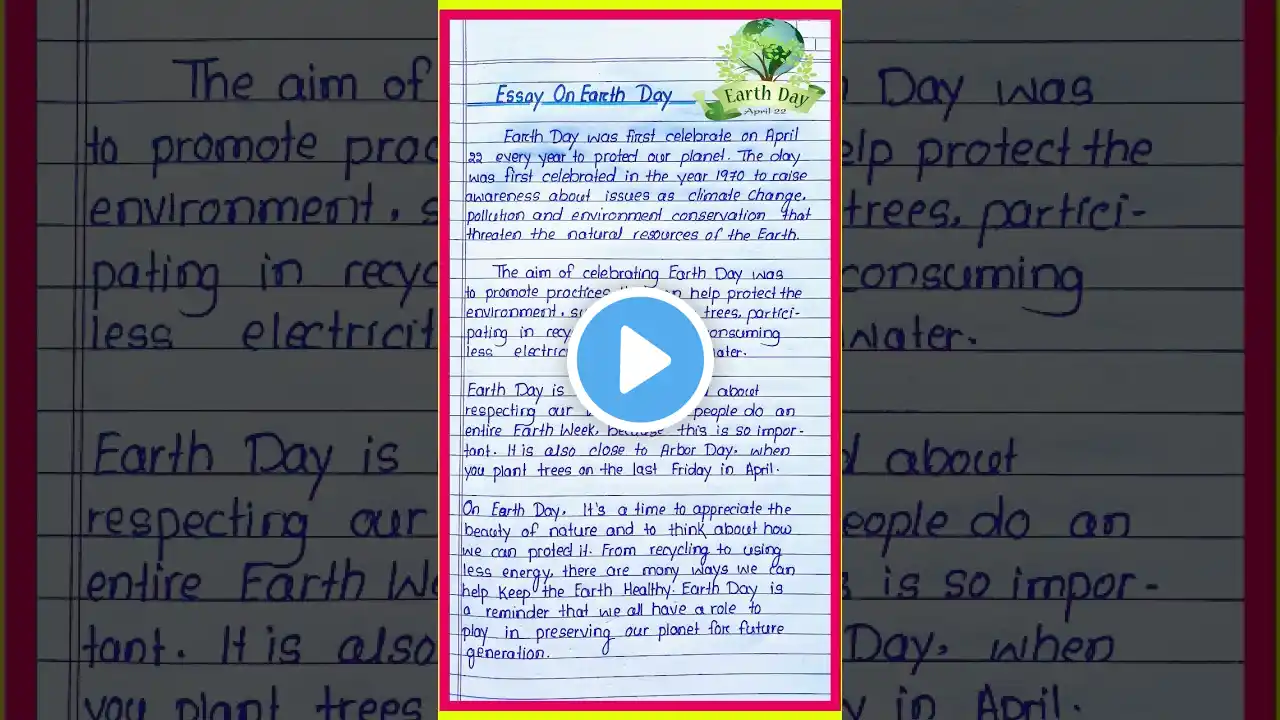 Earth Day
April 22
Essay On Earth Day
Earth Day was first celebrate on April
22 every year to proted our planet. The day
was first celebrated in the year 1970 to raise
awareness about issues as climate change,
pollution and environment conservation that
threaten the natural resources of the Earth.
The aim of celebrating Earth Day was
to promote practices help protect the
environment, trees, partici-
pating in consuming
less water.
Earth Day is about
respecting our people do an
entire Earth Week, because this is so impor-
tant. It is also close to Arbor Day, when
you plant trees on the last Friday in April.
On Earth Day, It's a time to appreciate the
beauty of nature and to think about how
we can proted it. From recycling to using
less energy, there are many ways we can
help Keep the Earth Healthy. Earth Day is
a reminder that we all have a role to
play in preserving our planet for future
generation.